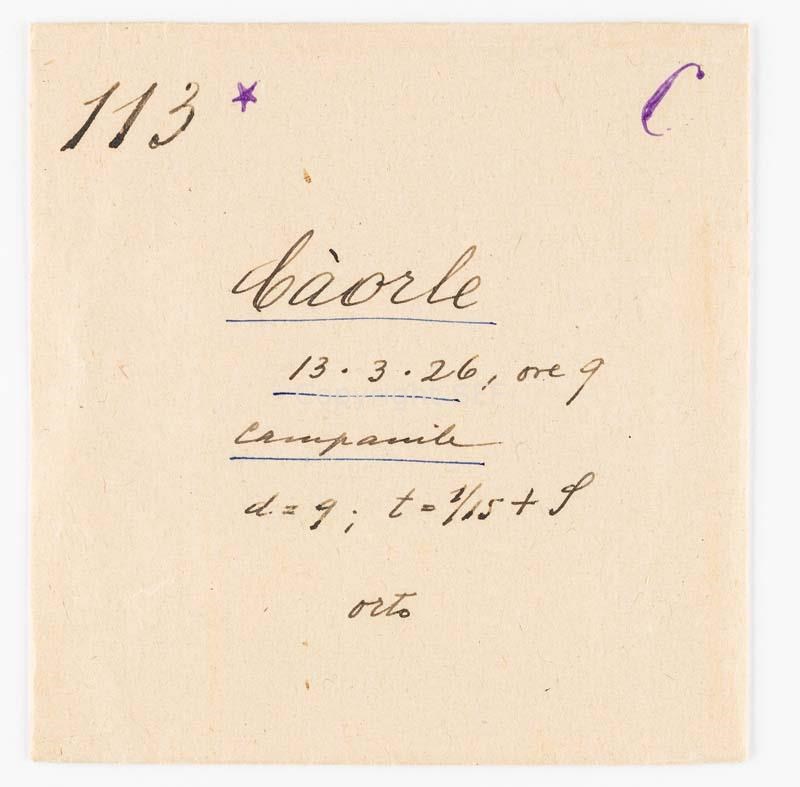 113 * C
Càorle
13.3.26, ore 9
campanile
d = 9; t = 1/15 + S
orto